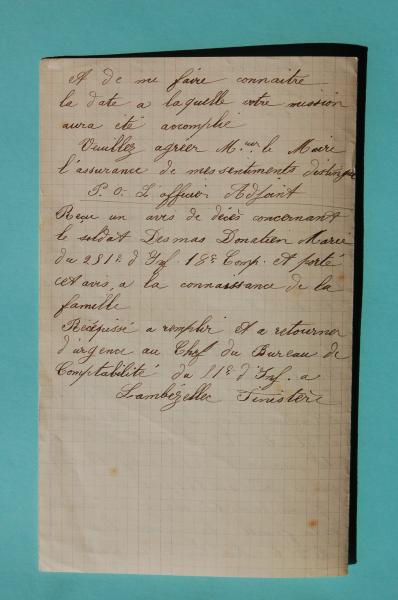 Et de me faire connaitre
la date a laquelle votre mission
aura été accomplie
Veuillez agréer M.eur le Maire
l'assurance de mes sentiments distingués
P. O. L'officier Adjoint
Reçu un avis de décès concernant
le soldat Desmas Donatien Marie
du 281e d'Inf. 18e Comp. Et porté
cet avis, a la connaissance de la
famille
Récépissé a remplir et a retourner
d'urgence au Chef du Bureau de
Comptabilité du 11e d'Inf. a
Lambézellec Finistère